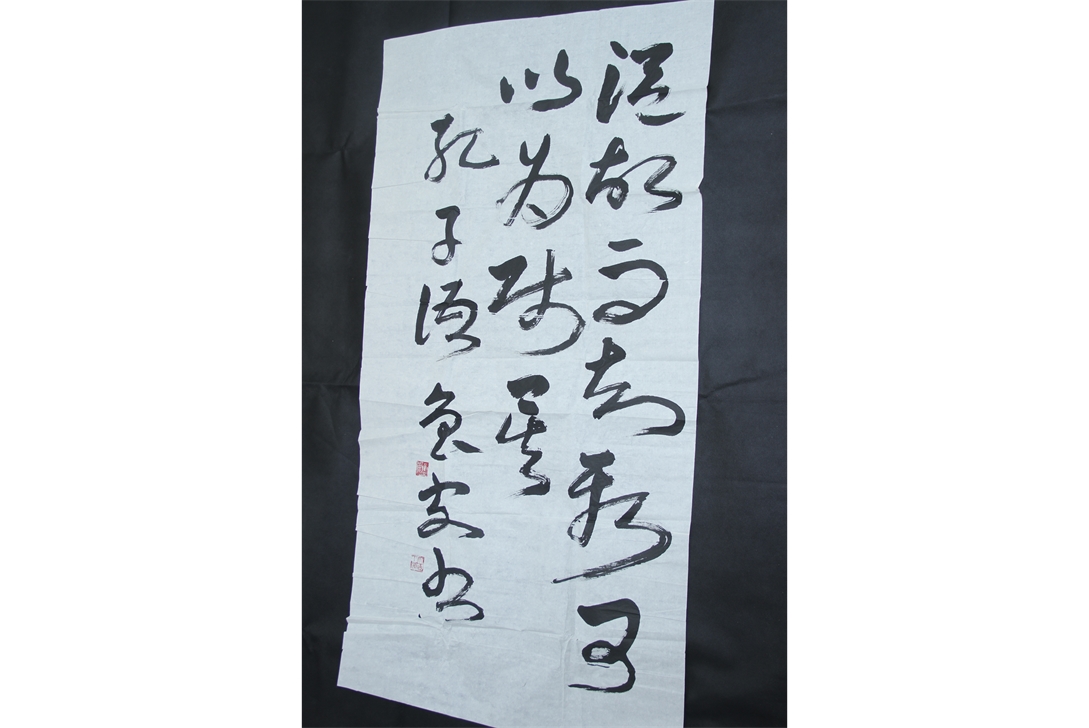 温故而知新可
以为师矣
孔子语书